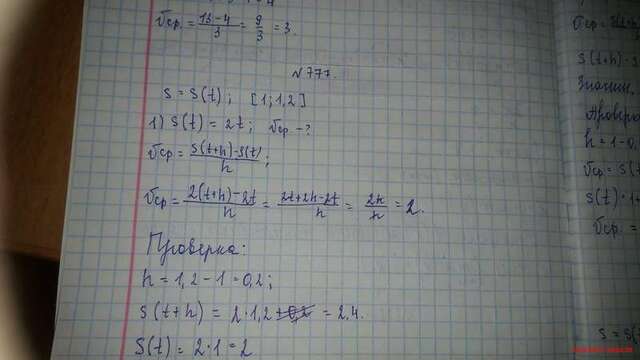 vср. = 13-4/3 = 9/3 = 3.
№777.
S = S(t); [1; 1,2]
1) S(t) = 2t; vср - ?
vср = S(t+h)-S(t)/h;
vср = 2(t+h)-2t/h = 2t+2h-2t/h = 2h/h = 2.
Проверка:
h = 1,2 - 1 = 0,2;
S(t+h) = 2·1,2 +0,2 = 2,4.
S(t) = 2·1 = 2
vср =
S(t+h)-S
Значит,
Провер
h = 1-0,
vср = S(t
S(t) · 1+
vср =
S = S(